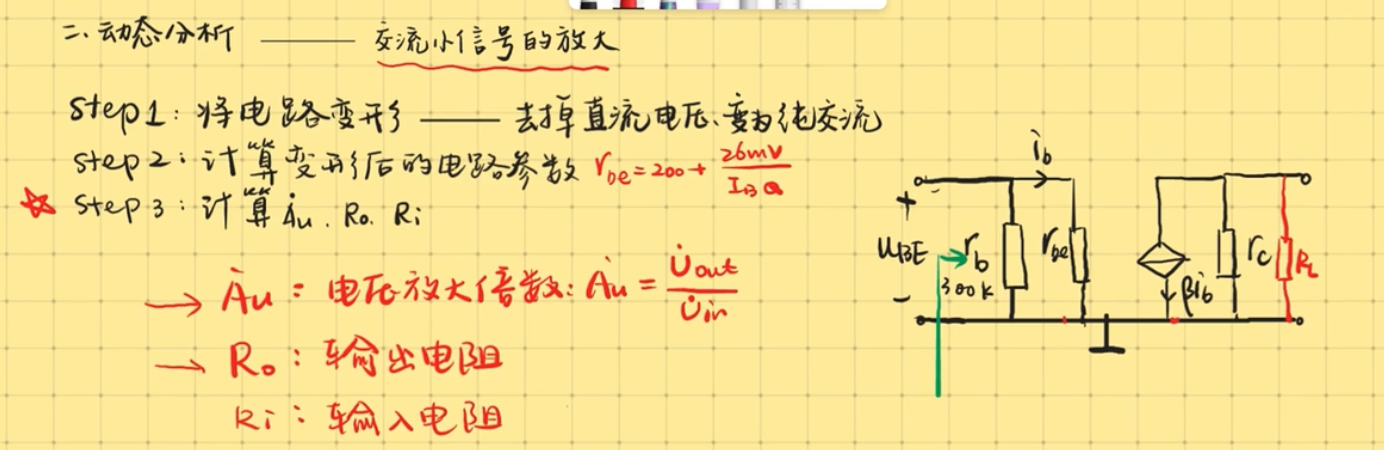 二. 动态分析 —— 交流小信号的放大
step1: 将电路变形 —— 去掉直流电压、变为纯交流
step2: 计算变形后的电路参数 rbe=200+ 26mV/IBQ
☆ step3: 计算 Ȧu. Ro. Ri
→ Ȧu: 电压放大倍数: Ȧu = U̇out/U̇in
→ Ro: 输出电阻
Ri: 输入电阻
ib
+
UBE
-
rb
300k
rbe
βib
rc
RL